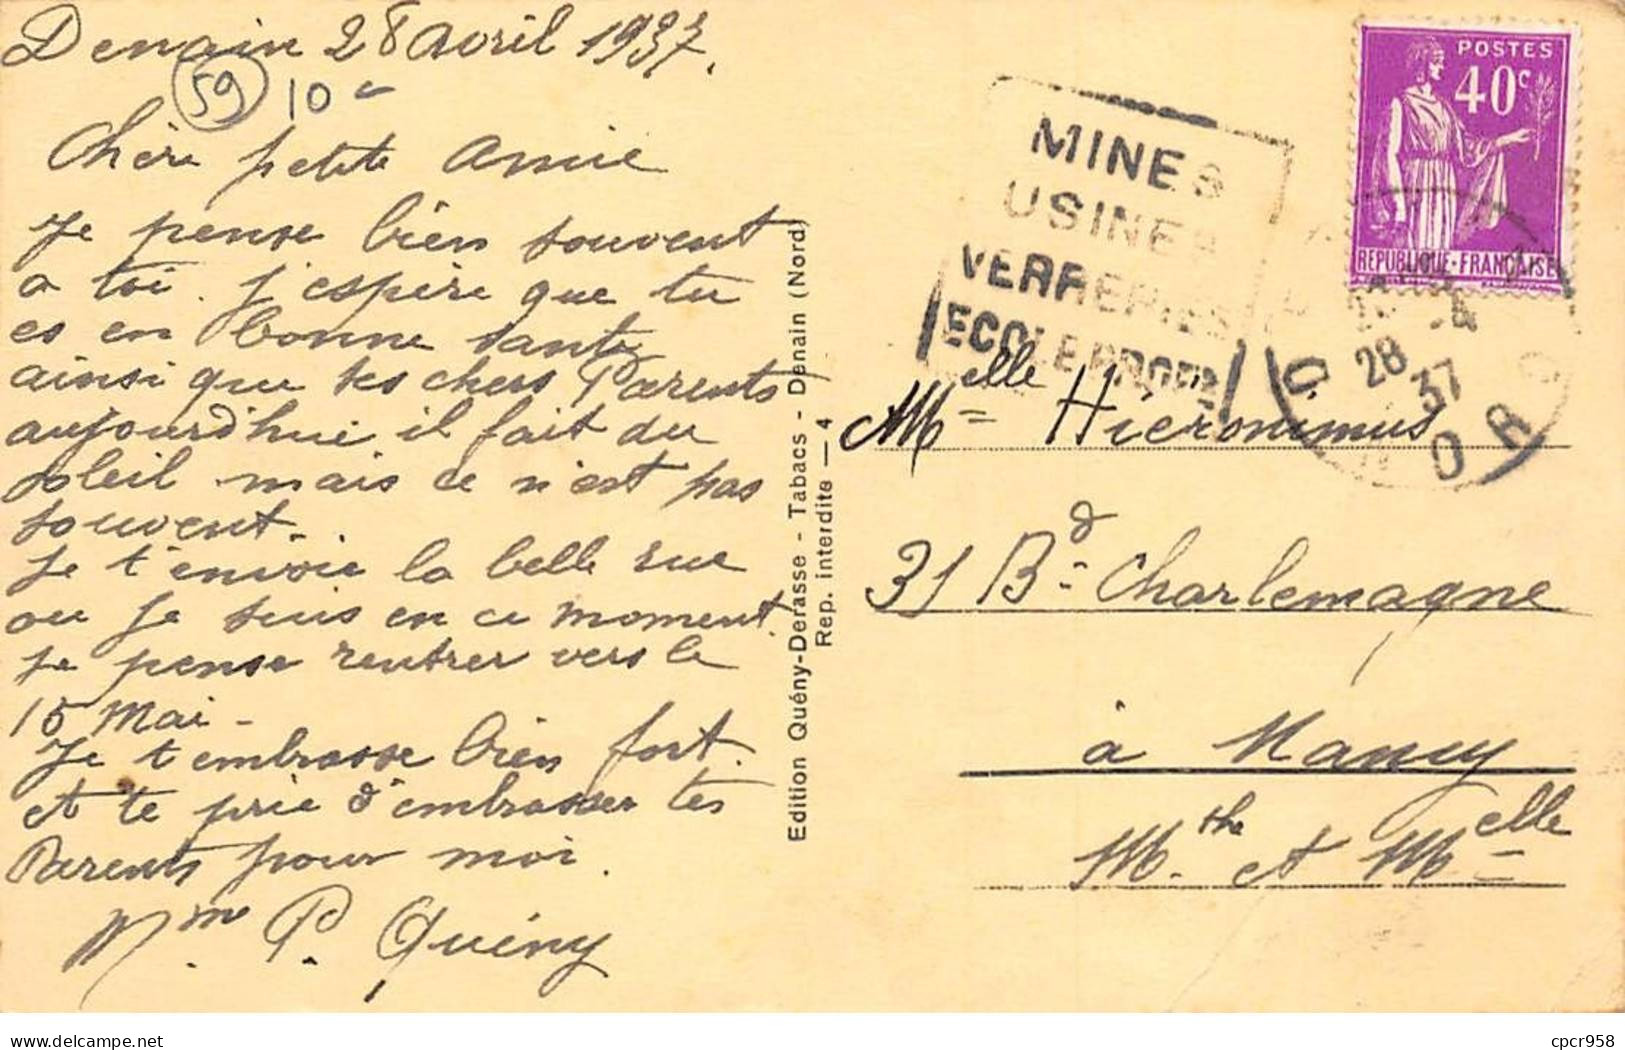 Denain 28 avril 1937.
59
10
Chère petite amie
Je pense bien souvent
a toi. J'espère que tu
es en bonne santé
ainsi que tes chers Parents
aujourd'hui il fait du
soleil mais ce n'est pas
souvent.
Je t'envoie la belle rue
ou je suis en ce moment.
Je pense rentrer vers le
15 Mai -
Je t'embrasse bien fort.
et te prie d'embrasser tes
Parents pour moi.
Mme P. Quény
Edition Quény-Derasse - Tabacs - Denain (Nord)
Rep. interdite — 4
MINES
USINES
VERRERIES
ECOLE PROF
POSTES
40c
REPUBLIQUE·FRANÇAISE
28 -4
37
Melle Hiéronimus
31 Bd Charlemagne
à Nancy
Mthe et Melle
www.delcampe.net
cpcr958